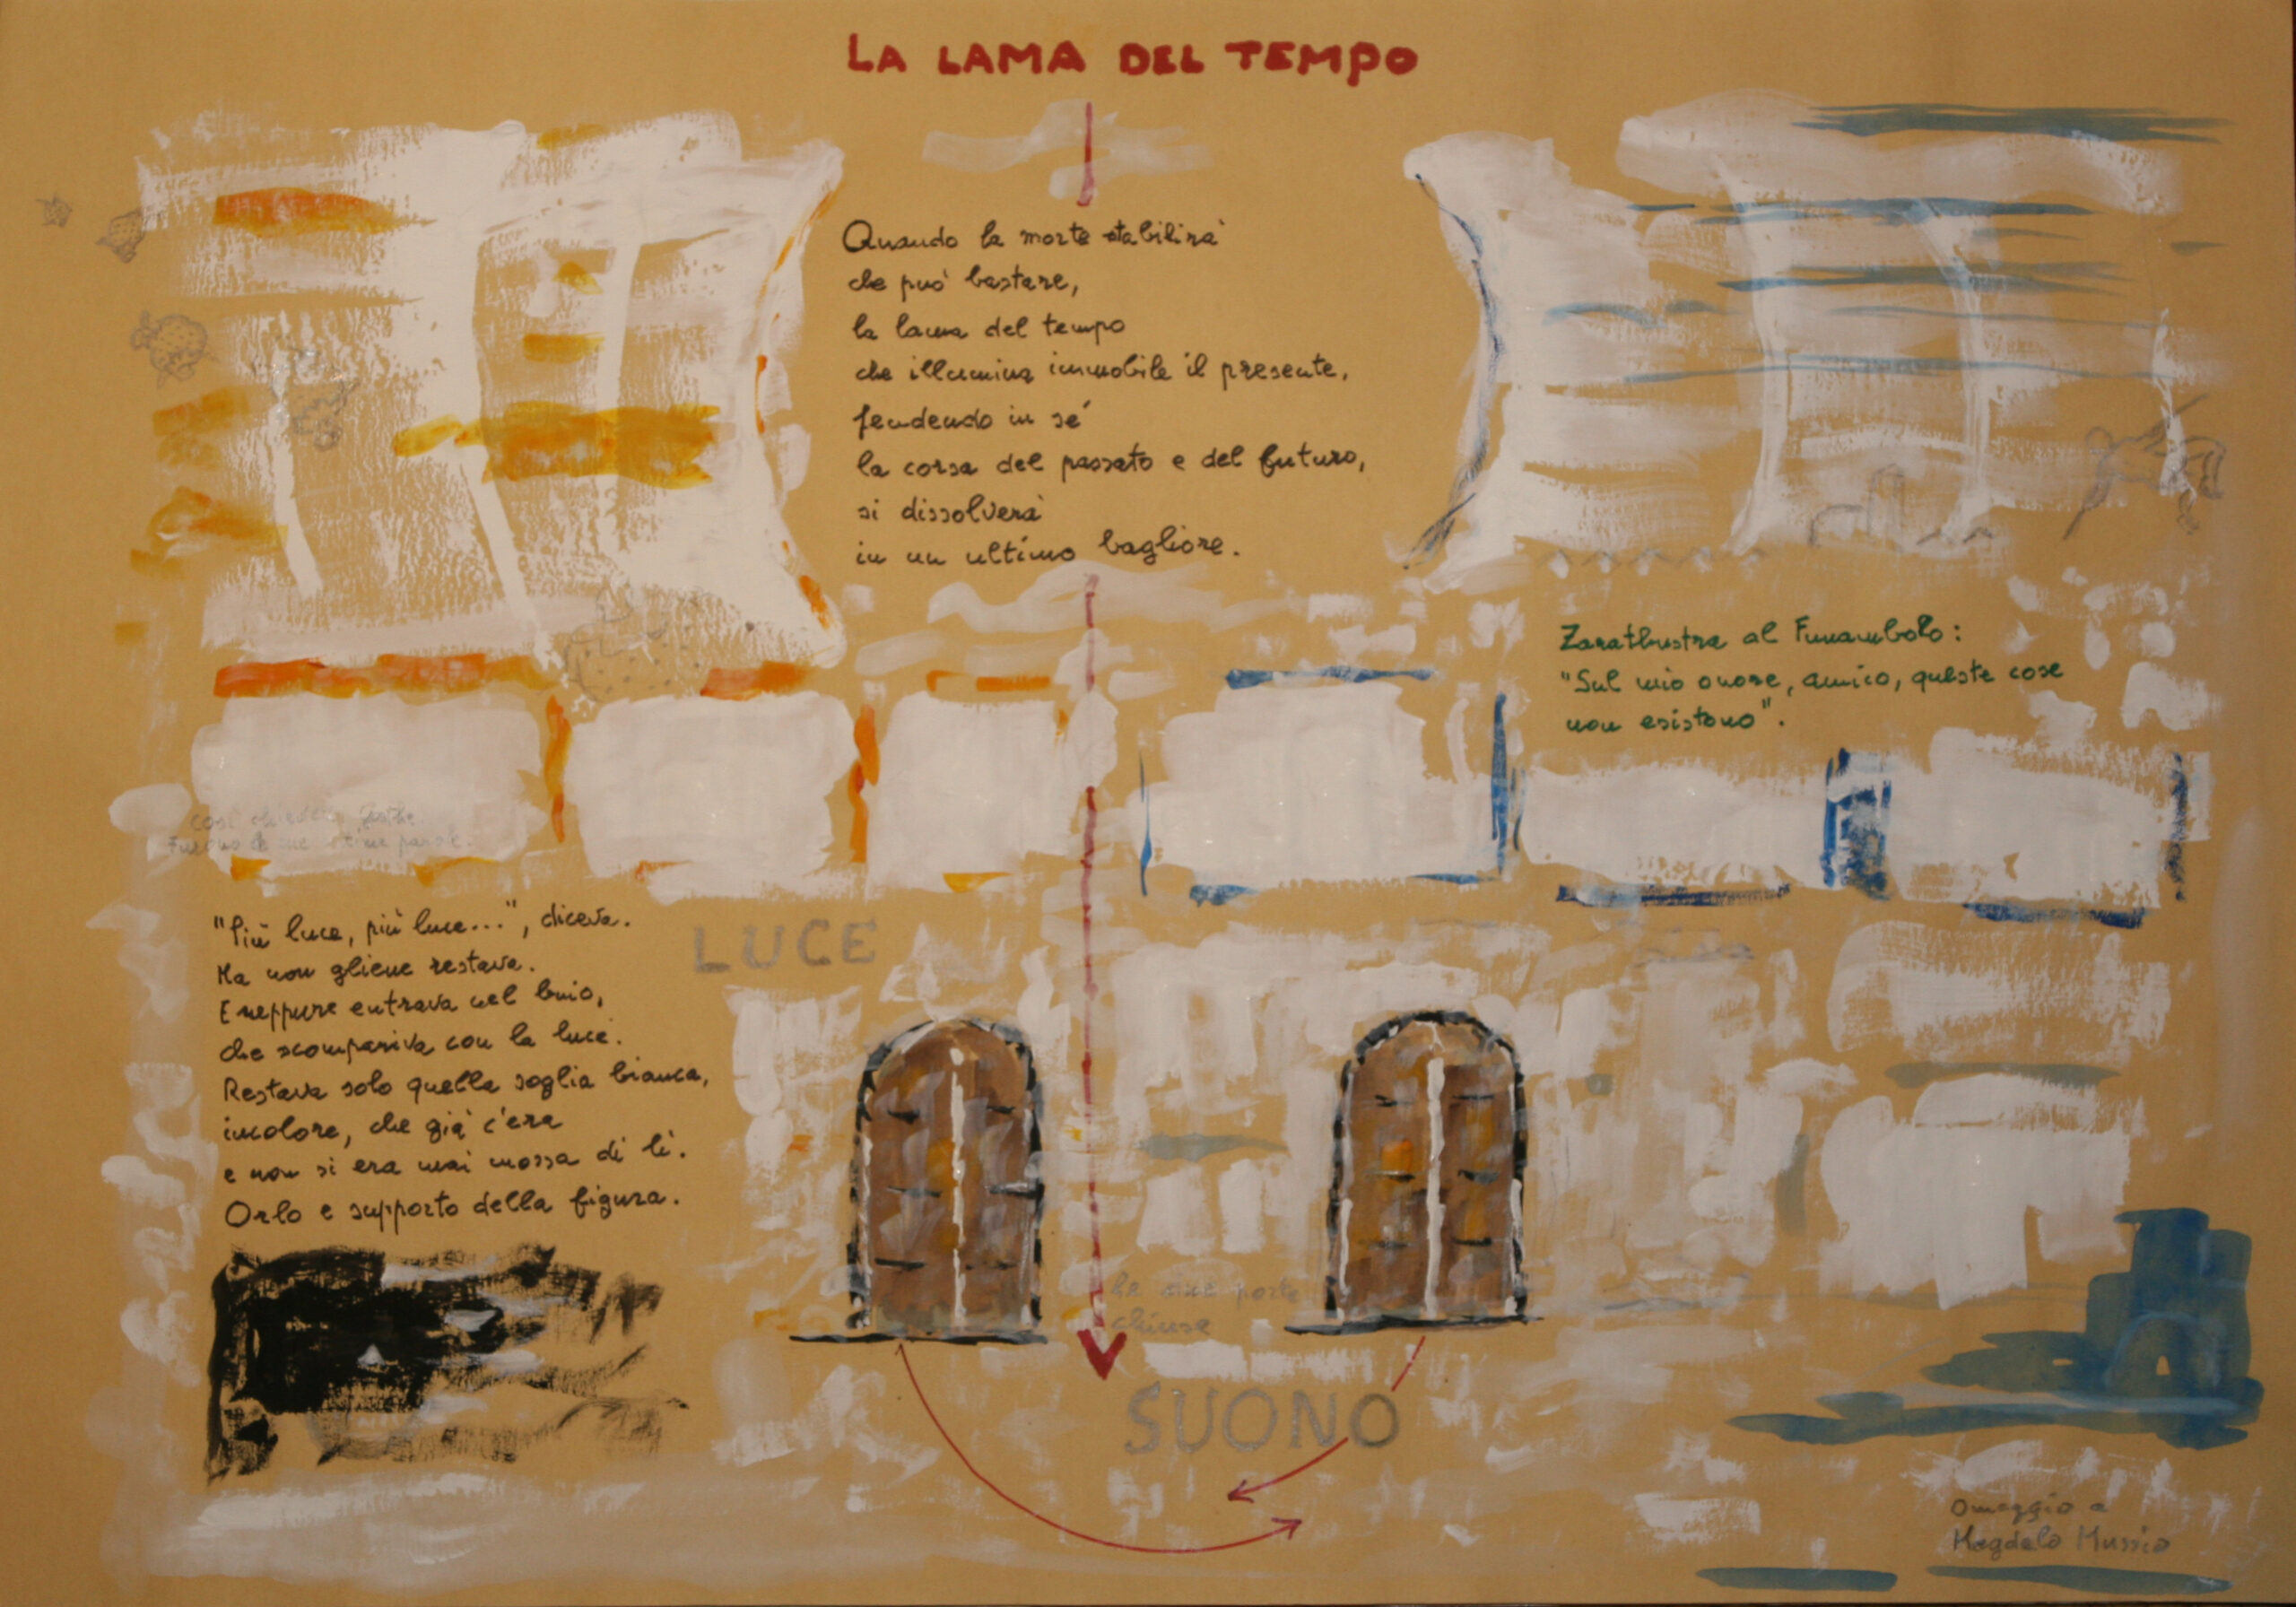 LA LAMA DEL TEMPO
Quando la morte stabilirà
che può bastare,
la lama del tempo
che illumina immobile il presente,
fendendo in sé
la corsa del passato e del futuro,
si dissolverà
in un ultimo bagliore.
Zarathustra al Funambolo:
"Sul mio onore, amico, queste cose
non esistono".
Così chiedeva Goethe.
Furono le sue ultime parole.
"Più luce, più luce...", diceva.
Ma non gliene restava.
E neppure entrava nel buio,
che scompariva con la luce.
Restava solo quella soglia bianca,
incolore, che già c'era
e non si era mai mossa di lì.
Orlo e supporto della figura.
LUCE
le due porte
chiuse
SUONO
Omaggio a
Magdalo Mussio